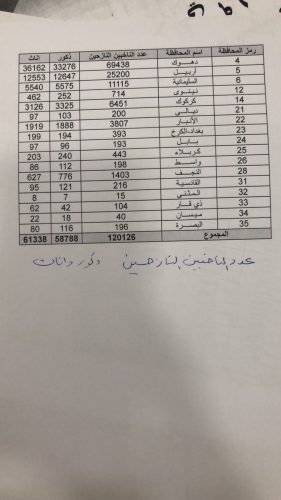 رمز المحافظة اسم المحافظة عدد الناخبين النازحين ذكور اناث
4 دهوك 69438 33276 36162
5 أربيل 25200 12647 12553
6 السليمانية 11115 5575 5540
12 نينوى 714 252 462
14 كركوك 6451 3325 3126
21 ديالى 200 103 97
22 الأنبار 3807 1888 1919
23 بغداد-الكرخ 393 194 199
24 بابل 193 96 97
25 كربلاء 443 240 203
26 واسط 198 112 86
28 النجف 1403 776 627
31 القادسية 216 121 95
32 المثنى 15 7 8
33 ذي قار 104 42 62
34 ميسان 40 18 22
35 البصرة 196 116 80
المجموع 120126 58788 61338
عدد الناخبين النازحين ذكور واناث